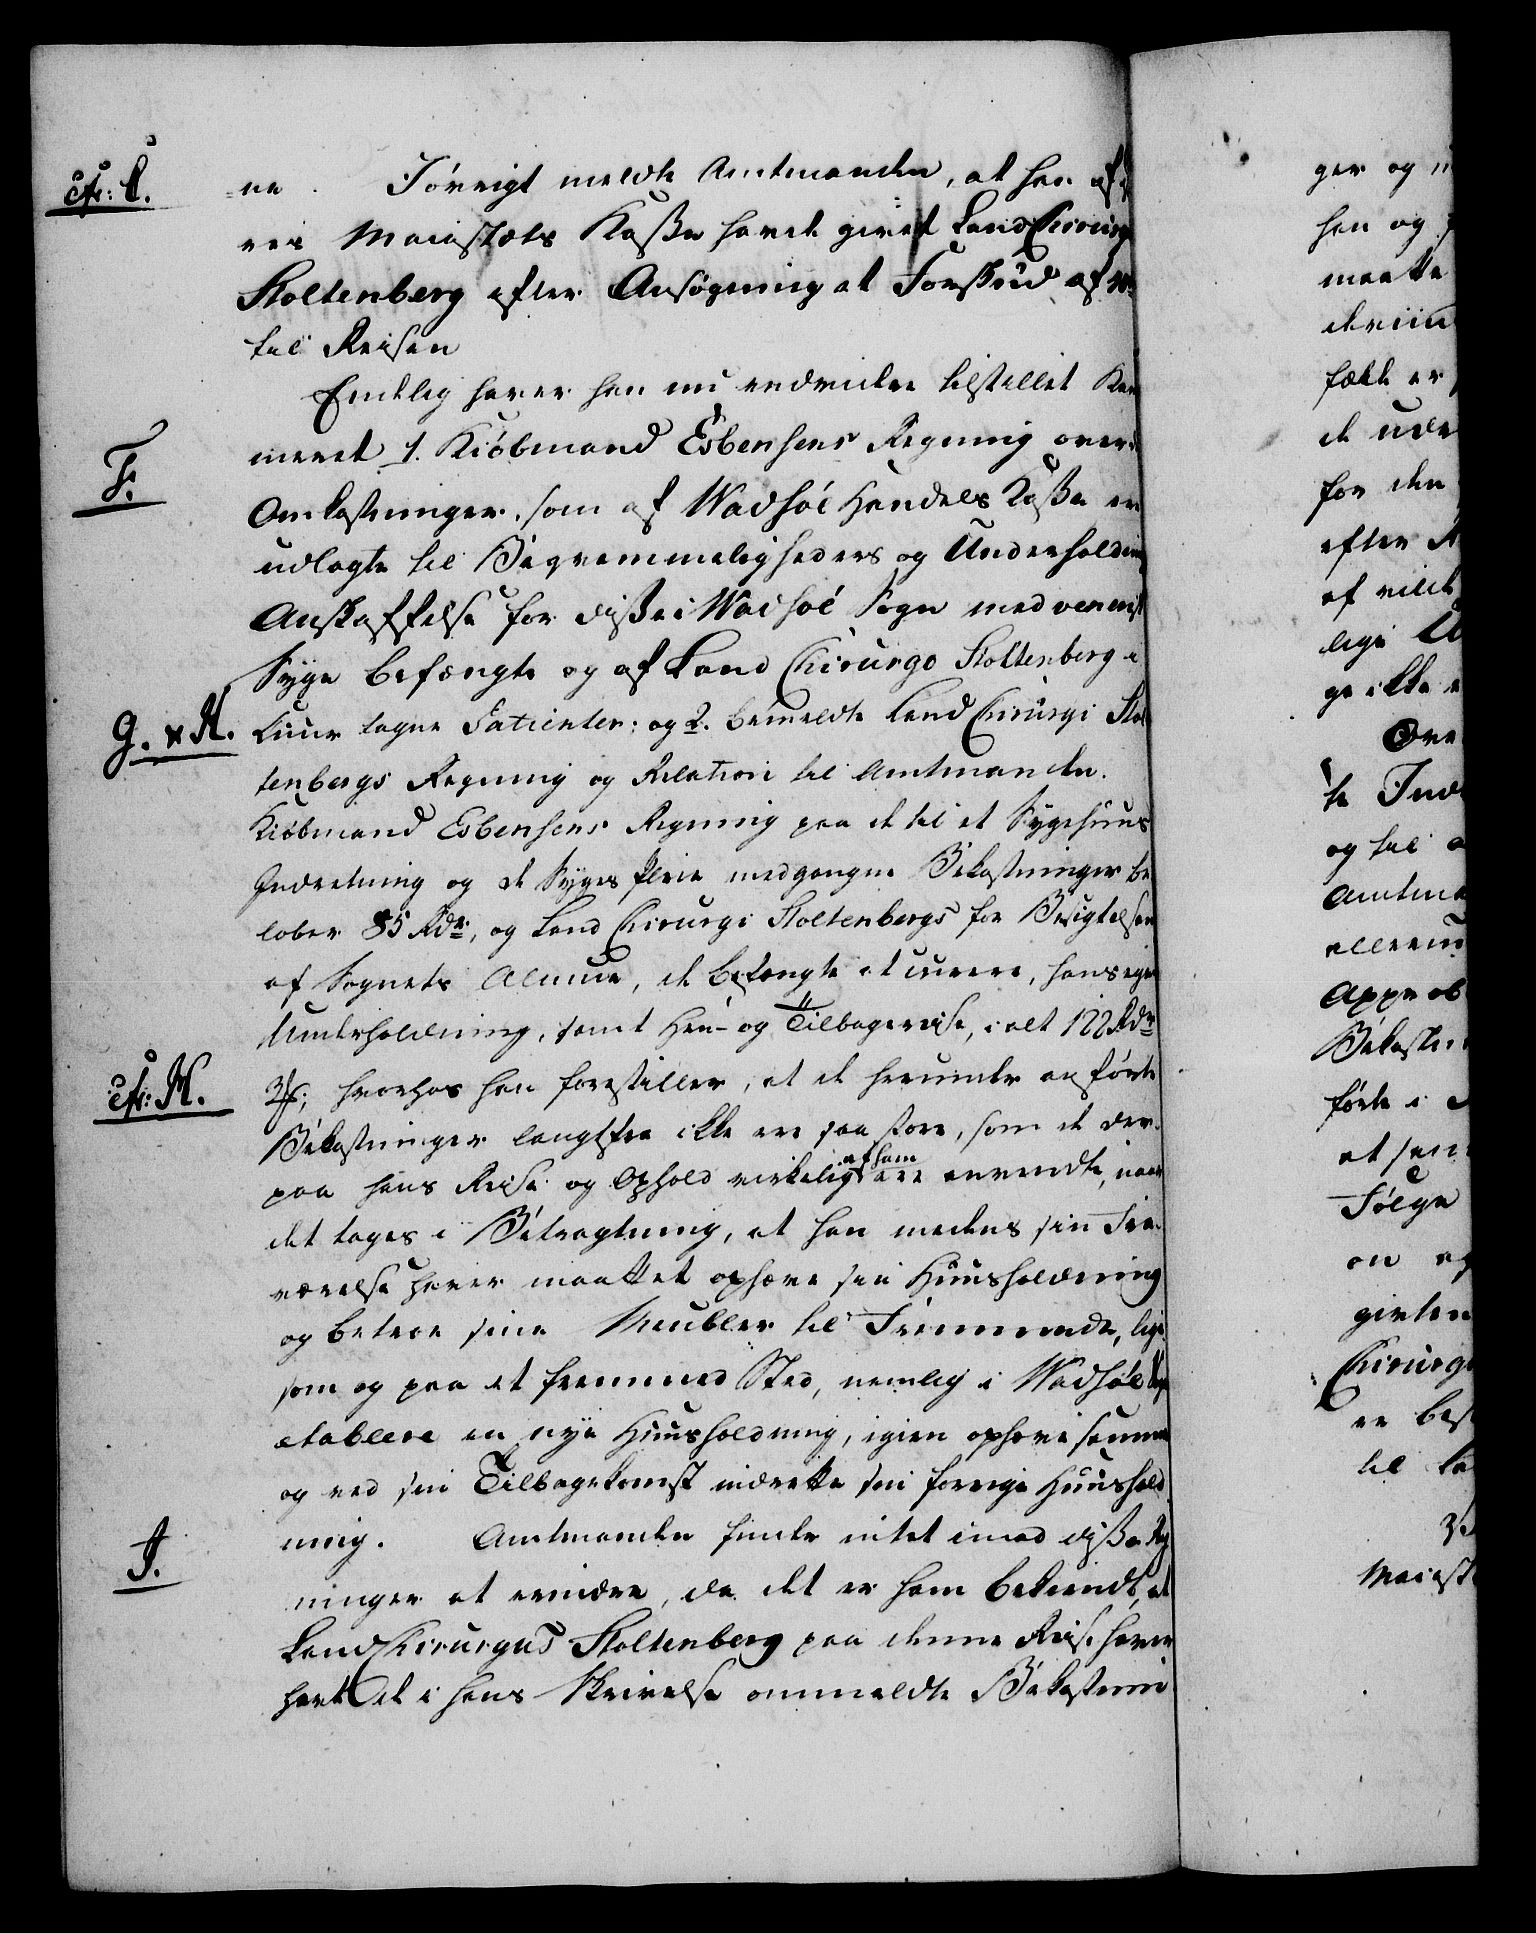 cfr: C.
ne. Iövrigt meldte Amtmanden, at han af
res Maiestæts Kasse havde givet Land Chirurgo
Stoltenberg efter Ansøgning et Forskud af
til Reisen
Endelig haver han nu endvidere tilstillet Kam
meret 1. Kiöbmand Esbensens Regning over
F.
Omkostninger, som af Wadsöe Handels Kasse ere
udlagte til Beqvemmeligheders og Underholdnings
Anskaffelse for disse i Wadsöe Sogn med venerisk
Syge befængte og af Land Chirurgo Stoltenberg i
G. & H.
Cuur tagne Patienter: og 2. bemeldte Land Chirurgi Stol
tenbergs Regning og Relation til Amtmanden.
Kiöbmand Esbensens Regning paa de til et Sygehuus
Indretning og de Syges Pleie medgangne Bekostninger be
löber 85 Rdr, og Land Chirurgi Stoltenbergs for Besigtelsen
af Sognets Almue, de befængte at curere, hans egen
Underholdning, samt Hen- og Tilbagereise, i alt 122 Rdr
cfr: H.
3 s; hvorhos han forestiller, at de herunder anförte
Bekostninger langtfra ikke ere saa store, som de der
paa hans Reise og Ophold virkelig af ham ere anvendte, naar
det tages i Betragtning, at han medens sin Fra-
værelse haver maattet ophæve sin Huusholdning
og betroe sine Meubler til Fremmede, lige
som og paa et fremmed Sted, nemlig i Wadsöe
etablere en nye Huusholdning, igien ophæve samme
og ved sin Tilbagekomst indrette sin forrige Huushold
ning. Amtmanden finder intet imod disse Reg
I.
ninger at erindre, da det er ham bekiendt, at
Land Chirurgus Stoltenberg paa denne Reise haver
havt de i hans Skrivelse ommeldte Bekostnin
ger og
han og
maatte
fælde er
de ude
for den
efter
af vilde
lige
ge ikke
Ove
te Ind
og til
Amtma
allerun
Approb
Bekostn
förte i
at
Fölge
on og
givten
Chirurg
er
til
Maiest